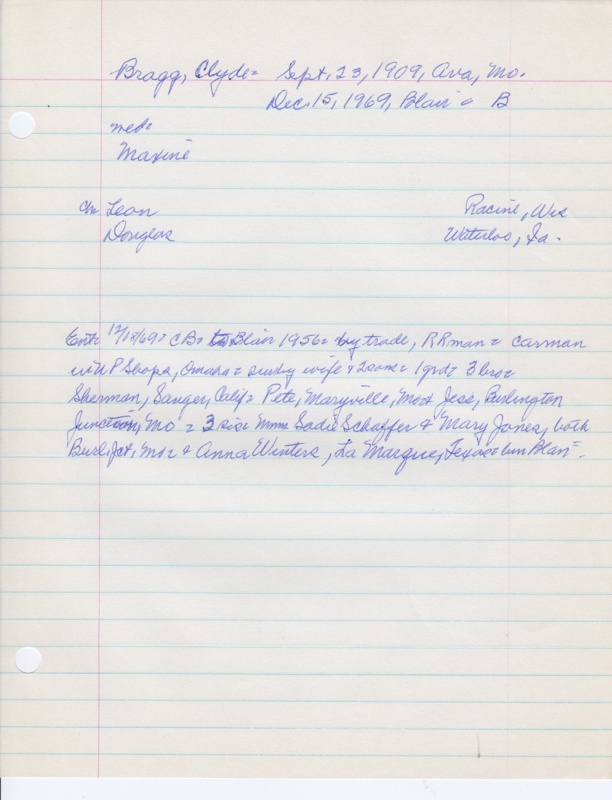 Bragg, Clyde = Sept. 23, 1909, Ava, Mo.
Dec. 15, 1969, Blair = B
med=
Maxine
Ch= Leon Racine, Wis
Douglas Waterloo, Ia.
Ent= 12/18/69 = CB = to Blair 1956 = by trade, RRman = carman
in UP Shops, Omaha = survby wife & 2 sons = 1 grd = 3 bro =
Sherman, Sanger, Calif = Pete, Maryville, Mo & Jess, Burlington
Junction, Mo = 3 sis = Mmes Sadie Schaffer & Mary Jones, both
Burl. Jct, Mo = & Anna Winters, La Marque, Texas = bur Blair =